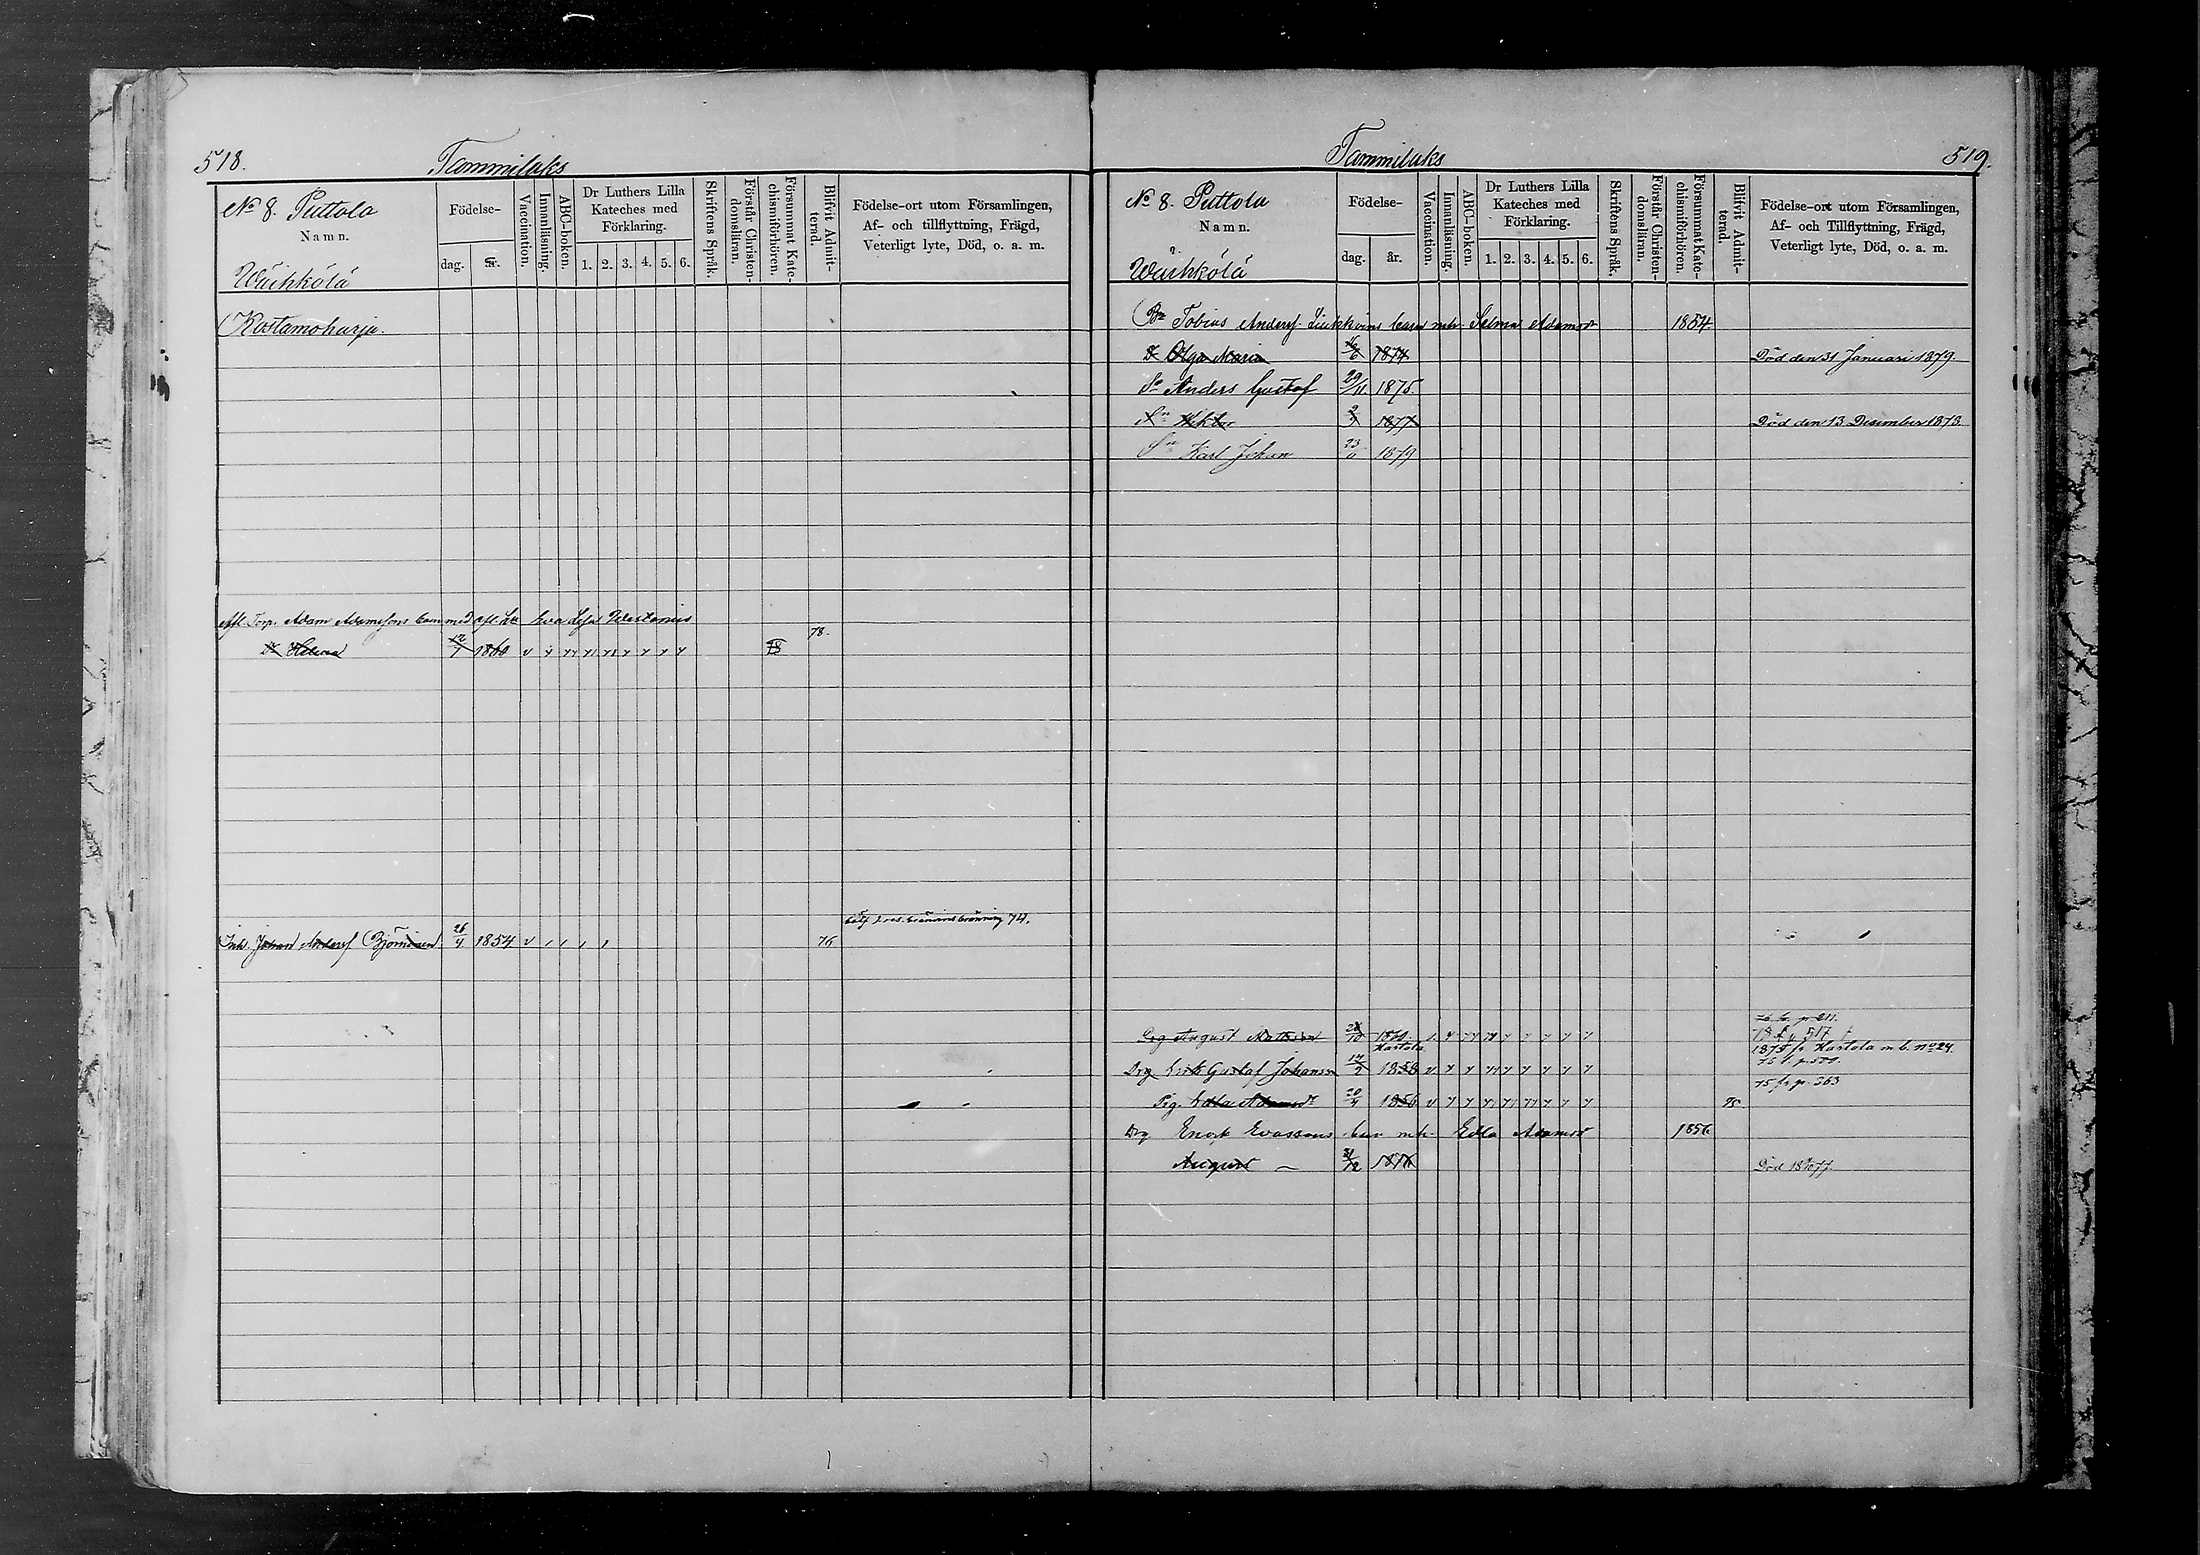 518.
Tammilaks
No 8. Puttola
Namn.
Wäihkölä
Födelse-
dag.
år.
Vaccination.
Innanläsning.
ABC-boken.
Dr Luthers Lilla
Kateches med
Förklaring.
1. 2. 3. 4. 5. 6.
Skriftens Språk.
Förstår Christen-
domsläran.
Försummat Kate-
chismiförhören.
Blifvit Admit-
terad.
Födelse-ort utom Församlingen,
Af- och tillflyttning, Frägd,
Veterligt lyte, Död, o. a. m.
Kostamoharju.
Afl. Torp. Adam Adamssons barn med afl.
78.
Dr Helena 12/7 1860
78
74.
Inh. Johan Andersf. Björninen 26/4 1854 76
Tammilaks
519.
No 8. Puttola
Namn.
Wäihkölä
Födelse-
dag.
år.
Vaccination.
Innanläsning.
ABC-boken.
Dr Luthers Lilla
Kateches med
Förklaring.
1. 2. 3. 4. 5. 6.
Skriftens Språk.
Förstår Christen-
domsläran.
Försummat Kate-
chismiförhören.
Blifvit Admit-
terad.
Födelse-ort utom Församlingen,
Af- och Tillflyttning, Frägd,
Veterligt lyte, Död, o. a. m.
Tobias Andersf. barn m. h. Selma Adamsdr 1854
Dr Olga Maria 1874 Död den 31 Januari 1879.
Sn Anders Gustaf 29/11. 1875.
Sn Wiktor 1877 Död den 13 Desember 1878.
Sn Karl Johan 1879
76 t. p. 211.
Drg August Matsson 28/10 1860. 517
Hartola
1875 fr Hartola m. b. no 24.
Drg Erik Gustaf Johansson 1858
75 fr. p. 363
Pig. Edla Adamsdr 20/4 1856 75.
Drg Enok Evassons barn m. h. Edla Adamsdr 1856
August — 31/12 1876 Död 77.